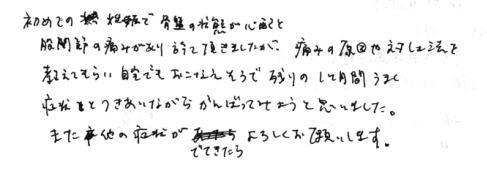 初めての妊娠で骨盤の状態が心配と
股関節の痛みがあり診て頂きましたが、痛みの原因や対処法を
教えてもらい自宅でもおこなえそうで残りの 月間うまく
症状とつきあいながらがんばってみようと思いました。
また他の症状が よろしくお願いします。
でてきたら